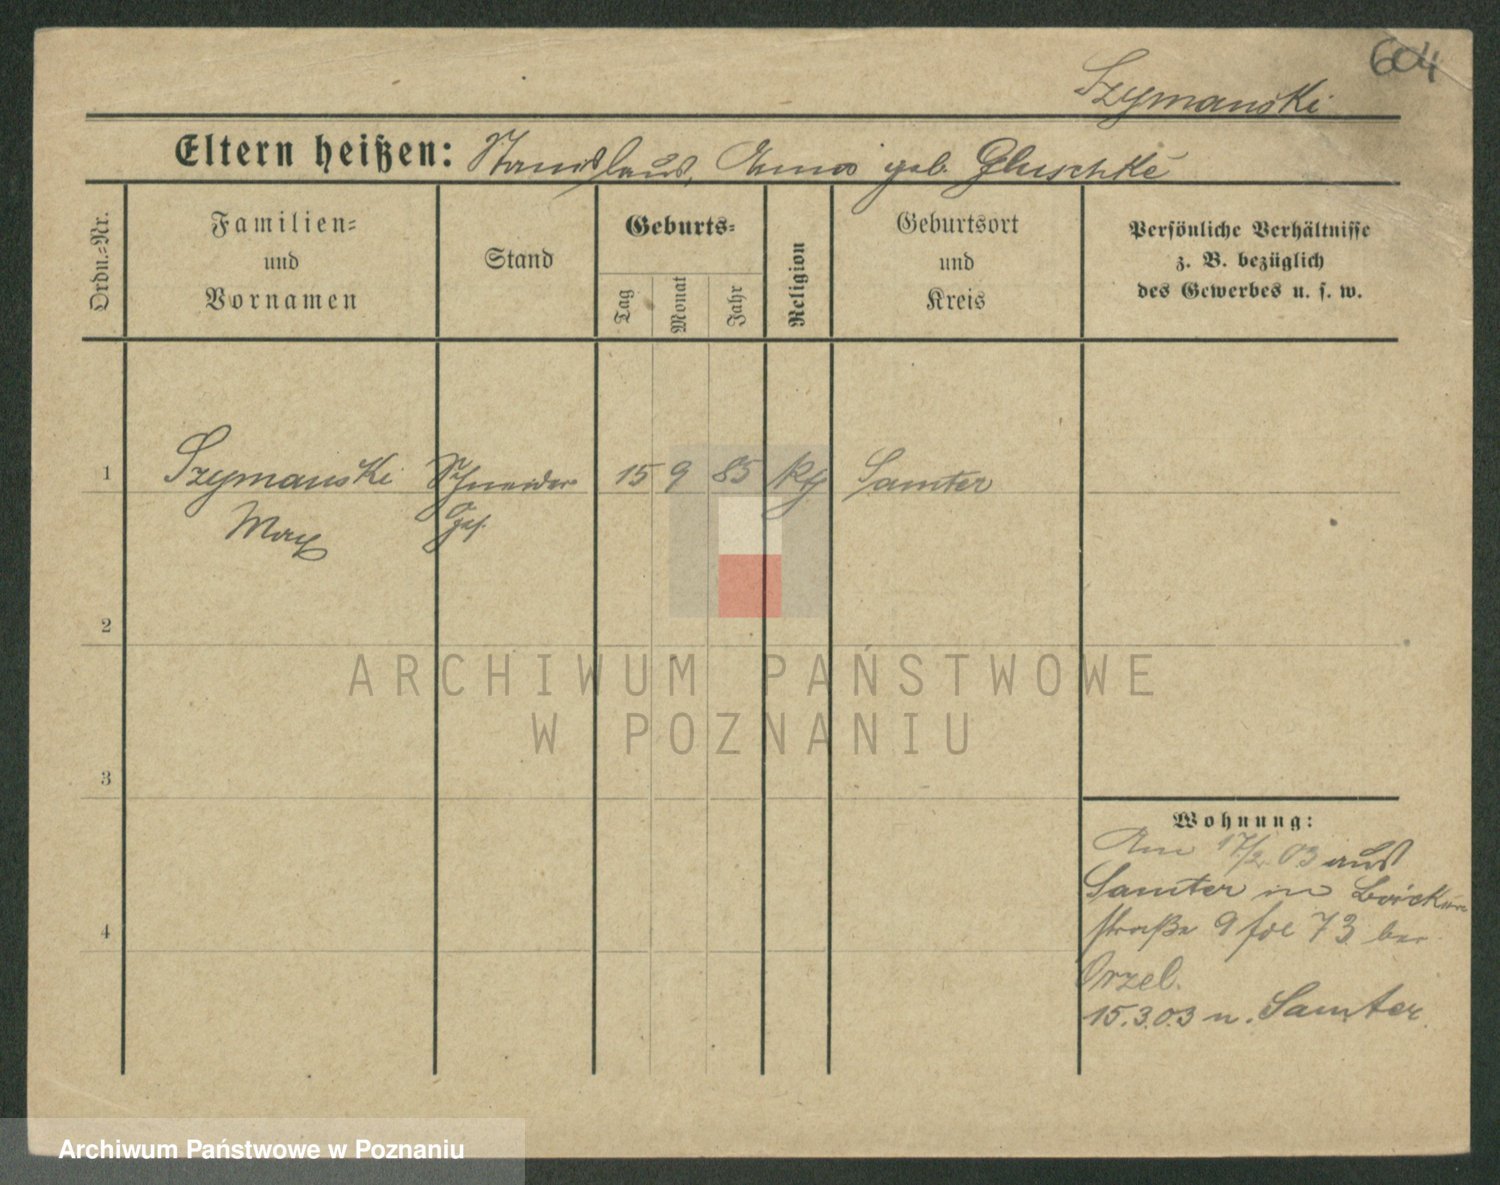 604
Szymanski
Eltern heißen: Stanislaus, Anna geb. Gluschke
Ordn.-Nr.
Familien-
und
Vornamen
Stand
Geburts-
Tag
Monat
Jahr
Religion
Geburtsort
und
Kreis
Persönliche Verhältnisse
z. B. bezüglich
des Gewerbes u. s. w.
1
Szymanski Schneider 15 9 85 kth Samter
Max ges.
2
ARCHIWUM PAŃSTWOWE
W POZNANIU
3
Wohnung:
Am 17/2 03 aus
Samter in
straße 9 fol 73 bei
4
Orzel.
15.3.03 n. Samter
Archiwum Państwowe w Poznaniu